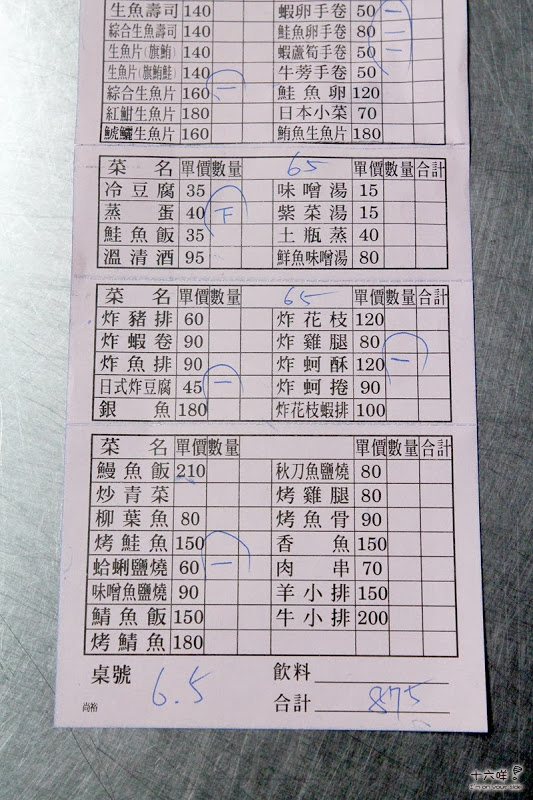 生魚壽司 140 蝦卵手卷 50 一
綜合生魚壽司 140 鮭魚卵手卷 80 二
生魚片(旗鮪) 140 蝦蘆筍手卷 50 一
生魚片(旗鮪鮭) 140 牛蒡手卷 50
綜合生魚片 160 一 鮭魚卵 120
紅魽生魚片 180 日本小菜 70
魷鱺生魚片 160 鮪魚生魚片 180
菜名 單價 數量 65 合計
冷豆腐 35 味噌湯 15
蒸蛋 40 下 紫菜湯 15
鮭魚飯 35 土瓶蒸 40
溫清酒 95 鮮魚味噌湯 80
菜名 單價 數量 65 單價 數量 合計
炸豬排 60 炸花枝 120
炸蝦卷 90 炸雞腿 80
炸魚排 90 炸蚵酥 120 一
日式炸豆腐 45 一 炸蚵捲 90
銀魚 180 炸花枝蝦排 100
菜名 單價 數量 單價 數量 合計
鰻魚飯 210 秋刀魚鹽燒 80
炒青菜 烤雞腿 80
柳葉魚 80 烤魚骨 90
烤鮭魚 150 香魚 150
蛤蜊鹽燒 60 一 肉串 70
味噌魚鹽燒 90 羊小排 150
鯖魚飯 150 牛小排 200
烤鯖魚 180
桌號 6.5 飲料
尚裕 合計 875
十六咩
I'm on your side